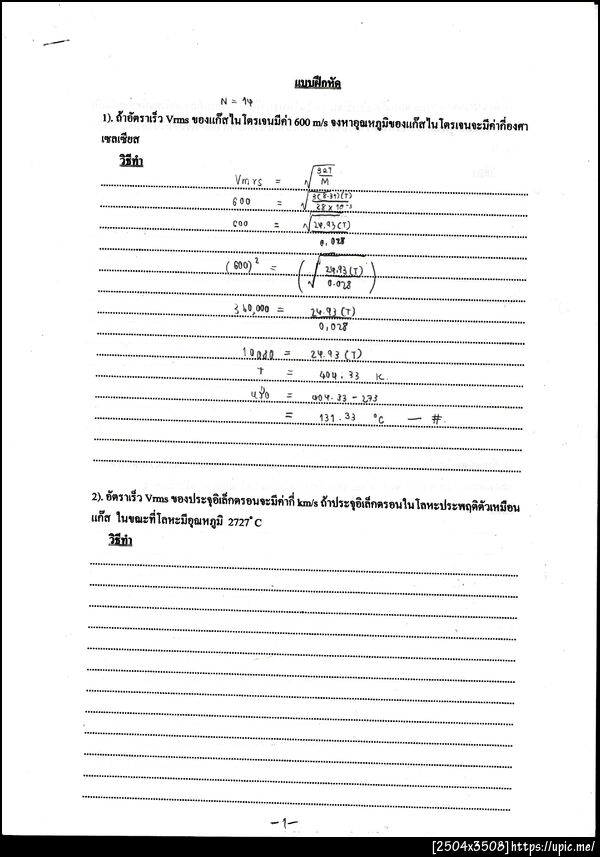 แบบฝึกหัด
N = 14
1). ถ้าอัตราเร็ว Vrms ของแก๊สไนโตรเจนมีค่า 600 m/s จงหาอุณหภูมิของแก๊สไนโตรเจนจะมีค่ากี่องศา
เซลเซียส
วิธีทำ
Vmrs = √(3RT/M)
600 = √(3(8.31)(T)/28 x 10⁻³)
600 = √(24.93(T)/0.028)
(600)² = (√(24.93(T)/0.028))
360,000 = 24.93(T)/0,028
10080 = 24.93 (T)
T = 404.33 K.
= 404.33 - 273
= 131.33 °C — #
2). อัตราเร็ว Vrms ของประจุอิเล็กตรอนจะมีค่ากี่ km/s ถ้าประจุอิเล็กตรอนในโลหะประพฤติตัวเหมือน
แก๊ส ในขณะที่โลหะมีอุณหภูมิ 2727°C
วิธีทำ
-1-
[2504x3508]https://upic.me/